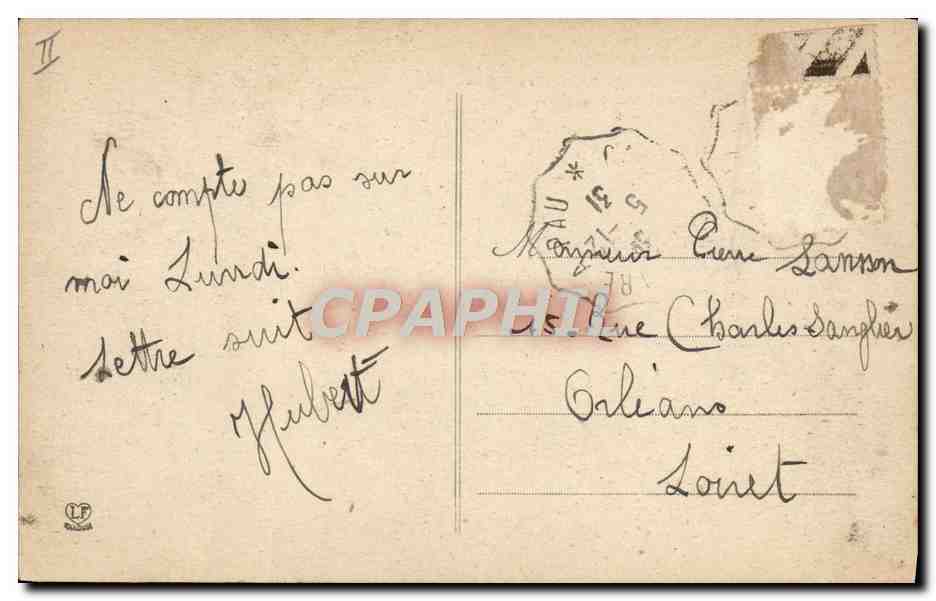 II
Ne compte pas sur
moi Lundi.
Lettre suit
Hubert
LF
AU *
5
31
Monsieur Pierre Sanson
15 Rue Charles Sanglier
Orléans
Loiret
CPAPHIL